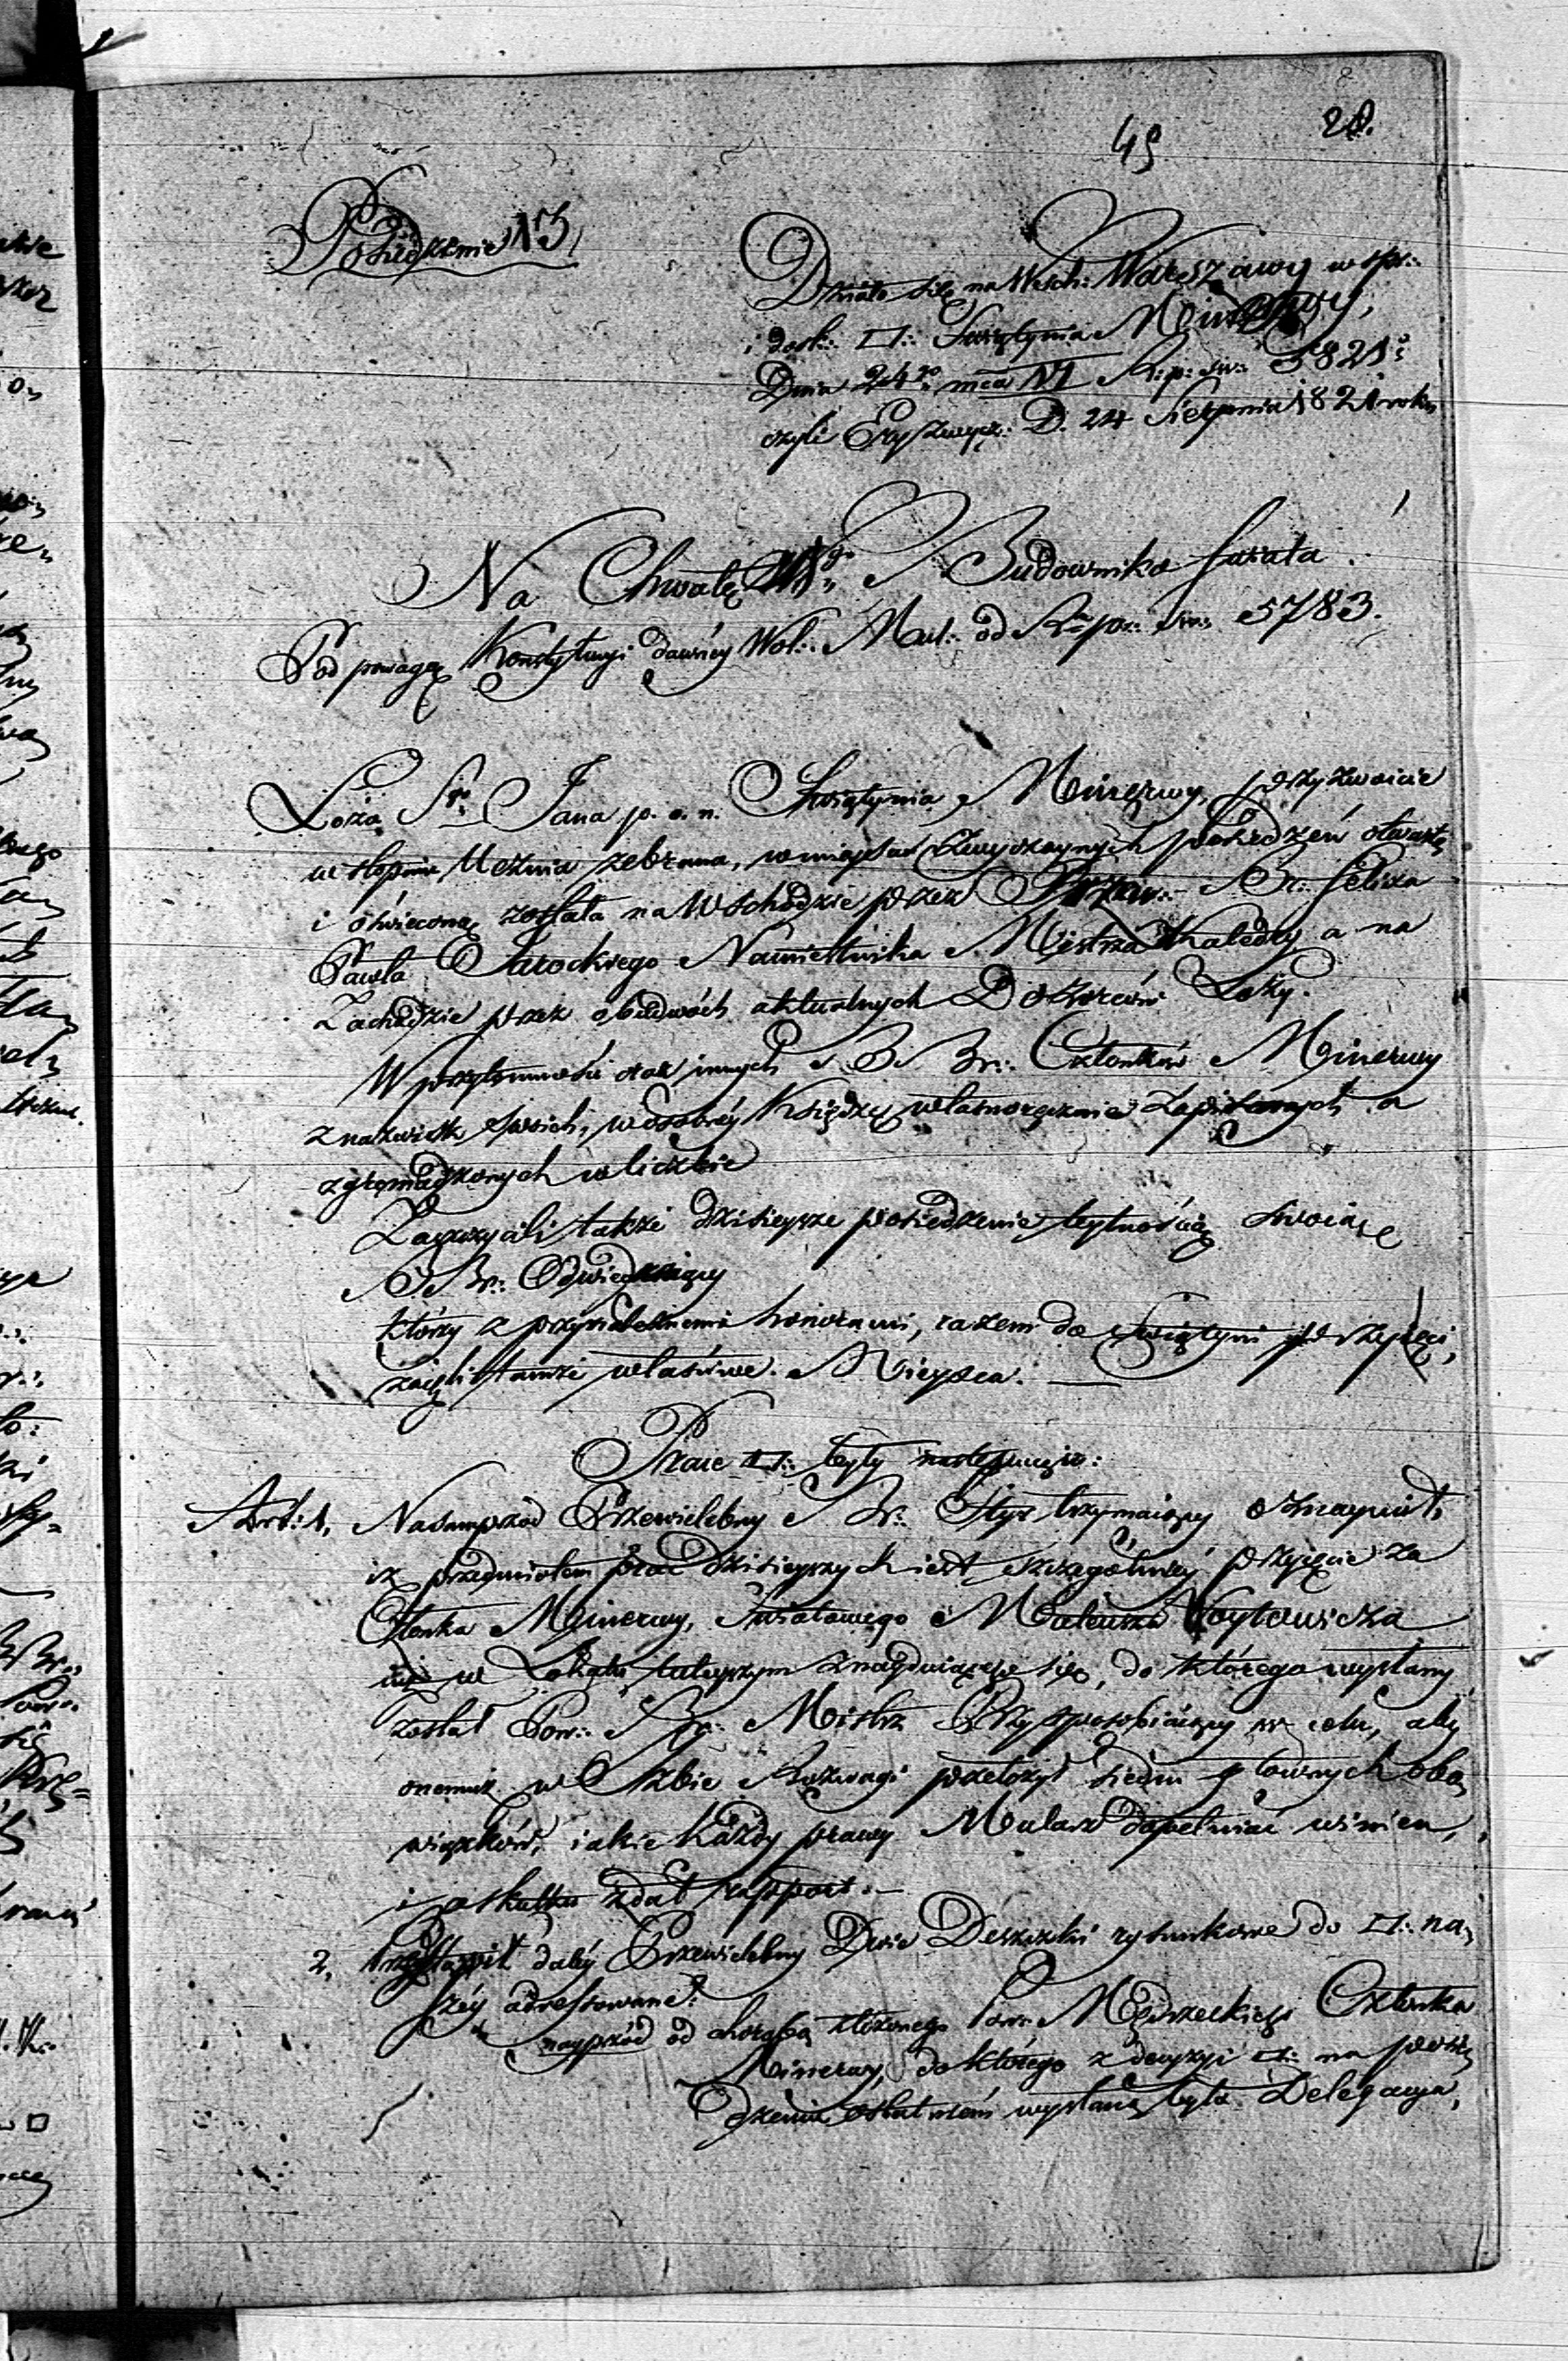 28.
45
Posiedzenie N 3,
Działo się na Wsch: Warszawy w spr:
i dosk: □: Swiątynia Minerwy,
Dnia 24go mca VI R: p: św: 5821:
czyli Ery Zwycz: D. 24 Sierpnia 1821 roku
Na Chwałę Wgo Budownika Swiata
Pod powagą Konstytucyi dawney Wol: Mul: od R. p: św: 5783.
Loża Sgo Jana p. o. n. Swiątynia Minerwy, przyzwoicie
w stopniu Ucznia zebrana, w mieyscu zwyczaynych posiedzeń otwartą
i oświeconą została na Wschodzie przez Przew: Br: Felixa
Pawła Jarockiego Namiestnika Mistrza Katedry a na
Zachodzie przez obudwóch aktualnych Dozorców Loży.
W przytomności oraz innych B Br: Członków Minerwy
z nazwisk swoich, w osobney Księdze własnoręcznie zapisanych a
zgromadzonych w liczbie
Zaszczycili także dzisieysze posiedzenie bytnością swoią
B Br: Odwiedzaiący
którzy z przynależnemi honorami, razem do Swiątyni przyięci,
zaięli tamże właściwe Mieysca. —
Prace □: były następuiące:
Art: 1, Nasamprzód Przewielebny Br: Styr trzymaiący oznaymił,
iż przedmiotem prac dzisieyszych iest szczególniey przyięcie za
Członka Minerwy, Swiatowego Mateusza Woytowicza
iuż w Lokalu tuteyszym znayduiącego się, do którego wysłany
został Pow: Br: Mistrz Przysposobiaiący w celu, aby
onemuż w Izbie Rozwagi przełożył siedm głównych obo,
wiązków, iakie każdy prawy Mularz dopełniać winien,
i o skutku zdał rapport. —
2, Przedstawił daléy Przewielebny Dwie Deszczki rysunkowe do □: na,
széy adressowane:
nayprzód od chorobą złożonego Pow: Mędrzeckiego Członka
Minerwy, do którego z decyzyi □: na posie,
dzeniu ostatniém wysłaną była Delegacya,